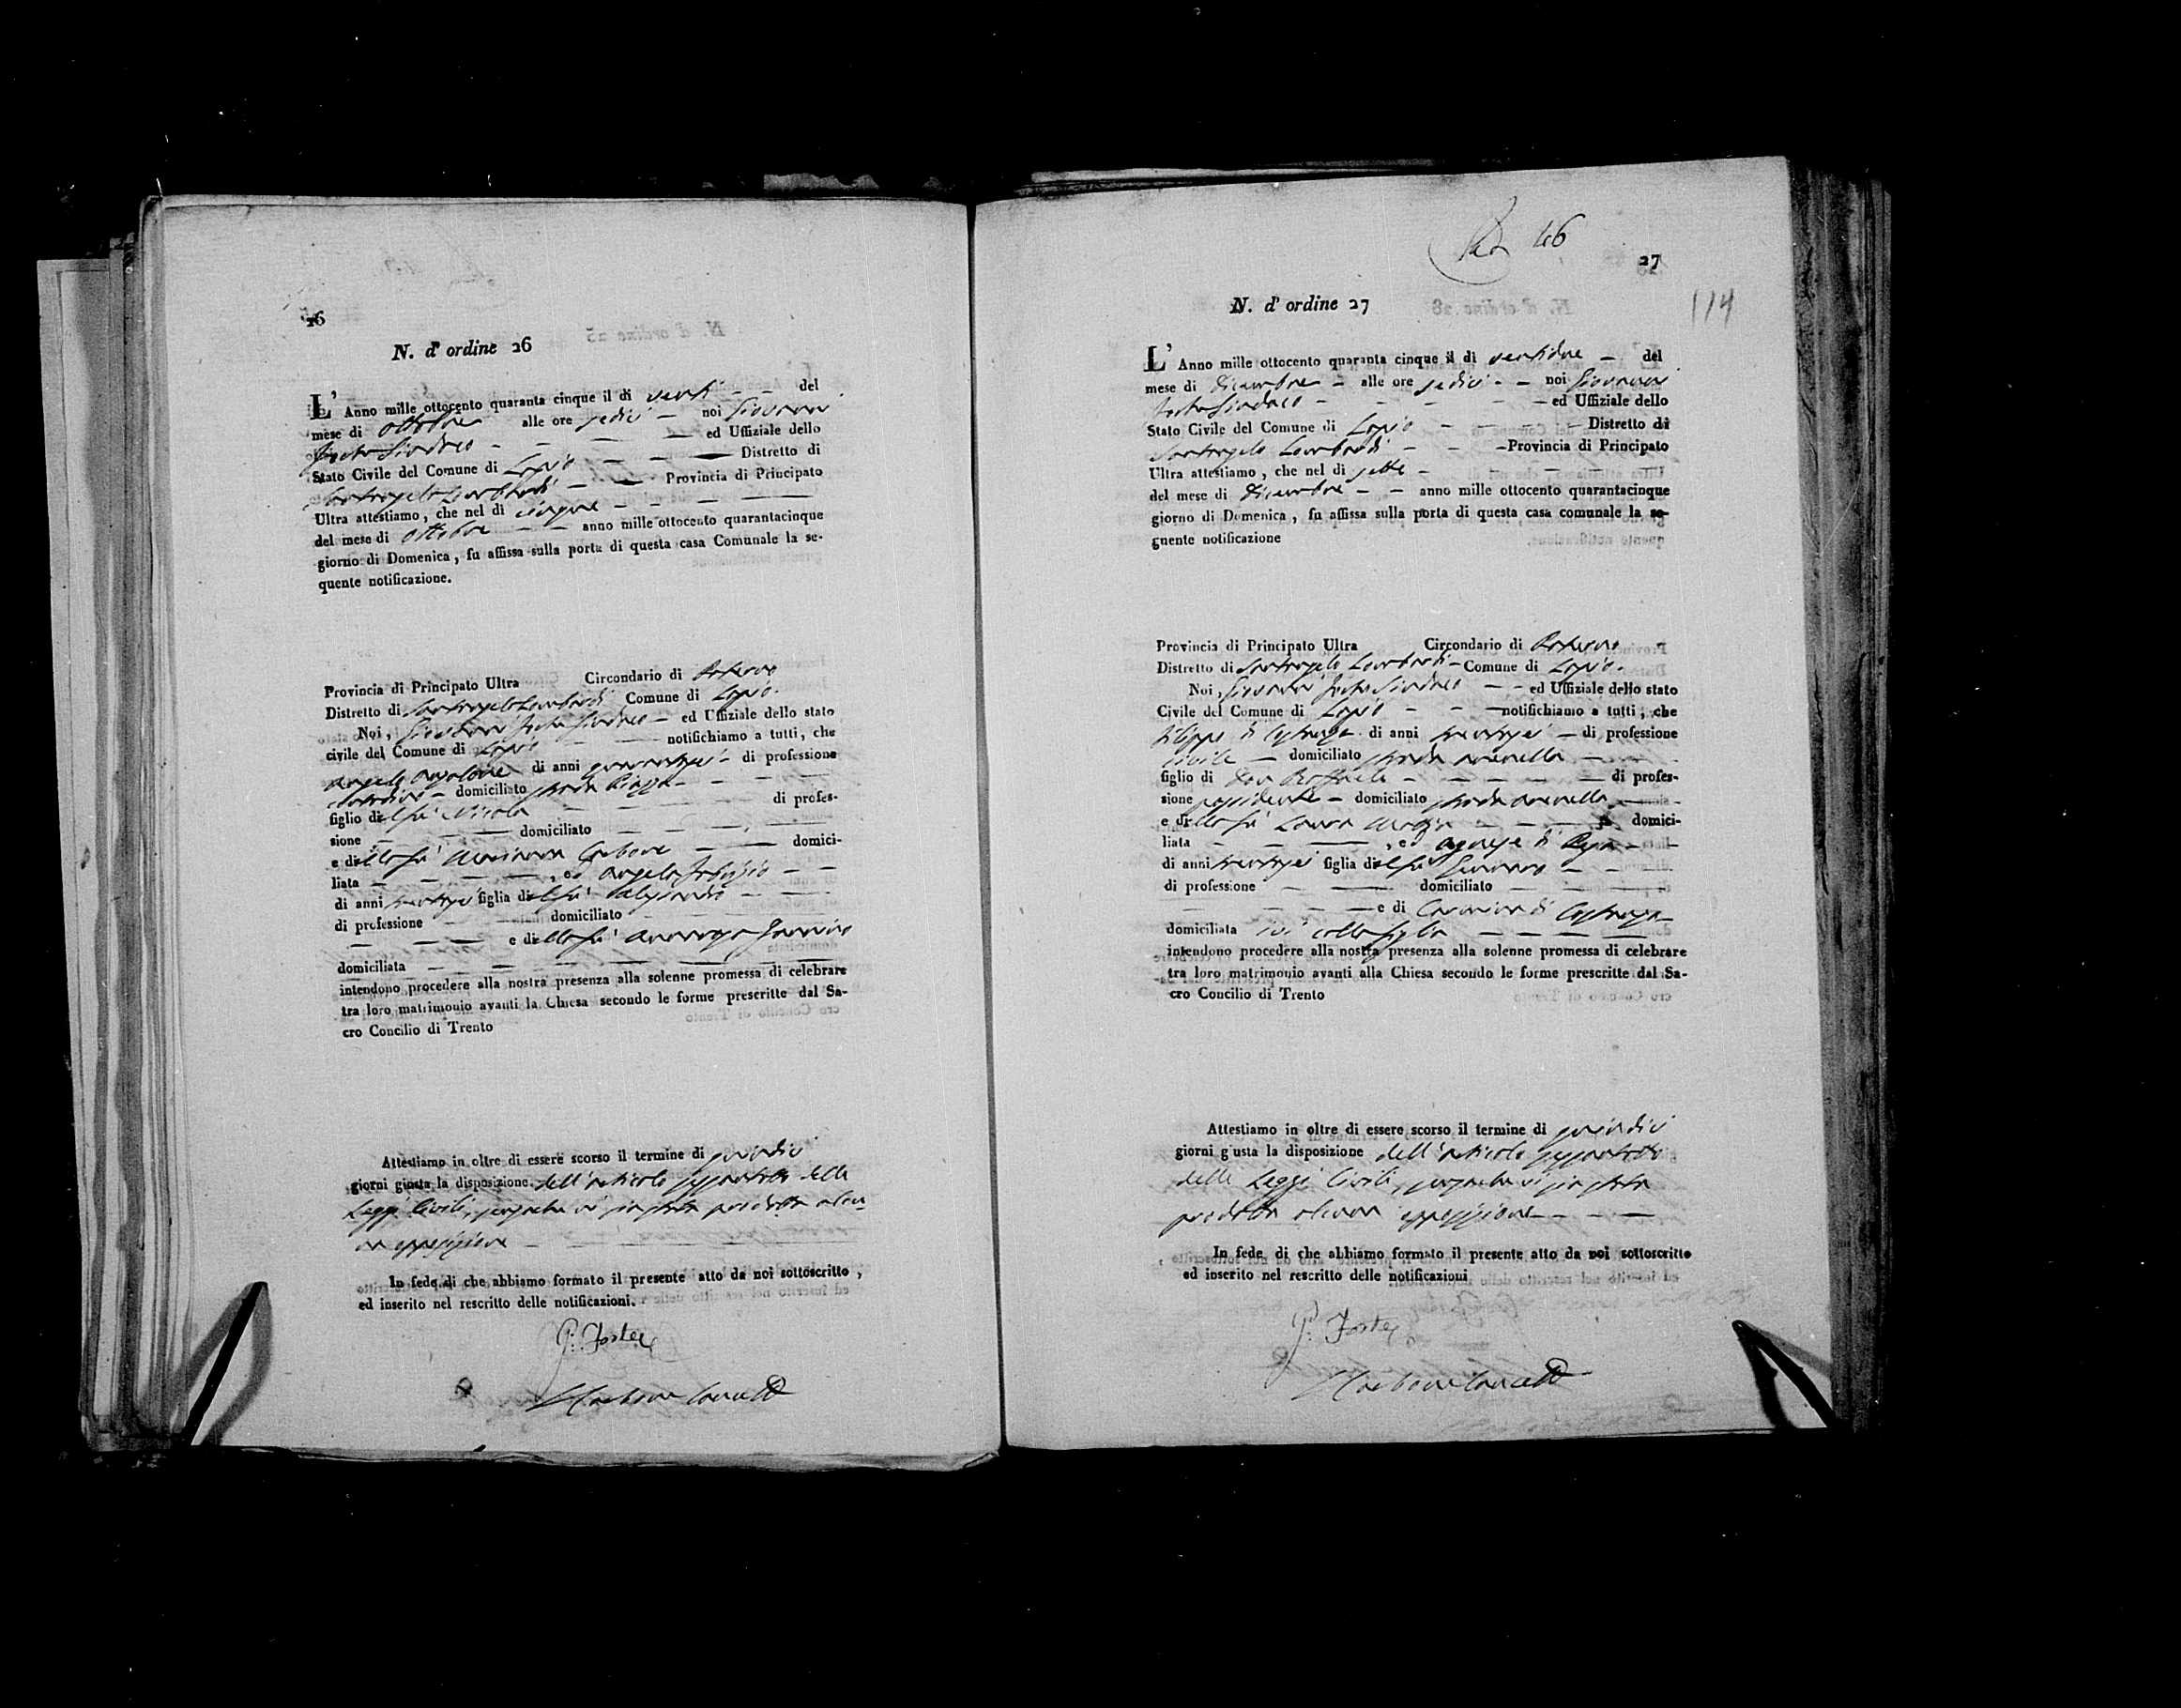 26
N. d' ordine 26
L' Anno mille ottocento quaranta cinque il di venti — — del
mese di ottobre alle ore sedici — noi Giovanni
Sindaco — — — — ed Uffiziale dello
Stato Civile del Comune di Lapio — — — Distretto di
Santangelo Lombardi — — Provincia di Principato
Ultra attestiamo, che nel di cinque — — — —
del mese di ottobre — — anno mille ottocento quarantacinque
giorno di Domenica, fu affissa sulla porta di questa casa Comunale la se-
quente notificazione.
Provincia di Principato Ultra Circondario di
Distretto di Santangelo Lombardi Comune di Lapio.
Noi, Giovanni Sindaco — ed Uffiziale dello stato
civile del Comune di Lapio — notifichiamo a tutti, che
Angelo di anni — di professione
contadino — domiciliato strada Piazza — — — —
figlio del fu Nicola — — — — di profes-
sione — — — domiciliato — — — —
e di della fu Carbone — — domici-
liata — — — — —, ed Angela — —
di anni figlia di del fu — —
di professione — — domiciliato — — —
— — — e di della fu
domiciliata — — — — — — —
intendono procedere alla nostra presenza alla solenne promessa di celebrare
tra loro matrimonio avanti la Chiesa secondo le forme prescritte dal Sa-
cro Concilio di Trento
Attestiamo in oltre di essere scorso il termine di quindici
giorni giusta la disposizione dell'articolo delle
Leggi Civili, prodotta alcu-
na opposizione — — — — —
In fede di che abbiamo formato il presente atto da noi sottoscritto,
ed inserito nel rescritto delle notificazioni.
G:
Carbone
46
27
114
N. d' ordine 27
L' Anno mille ottocento quaranta cinque il di ventidue — del
mese di Dicembre — alle ore sedici — — noi Giovanni
Sindaco — — — — — ed Uffiziale dello
Stato Civile del Comune di Lapio — — — — Distretto di
Santangelo Lombardi — — Provincia di Principato
Ultra attestiamo, che nel di sette — — — — —
del mese di Dicembre — — anno mille ottocento quarantacinque
giorno di Domenica, fu affissa sulla porta di questa casa comunale la se-
guente notificazione
Provincia di Principato Ultra Circondario di
Distretto di Santangelo Lombardi — Comune di Lapio.
Noi, Giovanni Sindaco — — ed Uffiziale dello stato
Civile del Comune di Lapio — — — notifichiamo a tutti, che
Filippo di di anni — di professione
civile — domiciliato strada — —
figlio di Don Raffaele — — — — — di profes-
sione possidente — domiciliato strada —
e di della fu Laura — — — domici-
liata — — — —, ed Agnese di — —
di anni figlia di del fu Gennaro — — —
di professione — — domiciliato — — —
— — — — e di di
domiciliata ivi colla figlia — — — — —
intendono procedere alla nostra presenza alla solenne promessa di celebrare
tra loro matrimonio avanti alla Chiesa secondo le forme prescritte dal Sa-
cro Concilio di Trento
Attestiamo in oltre di essere scorso il termine di quindici
giorni giusta la disposizione dell'articolo
delle Leggi Civili,
prodotta alcuna opposizione — — — —
In fede di che abbiamo formato il presente atto da noi sottoscritto
ed inserito nel rescritto delle notificazioni
G:
Carbone